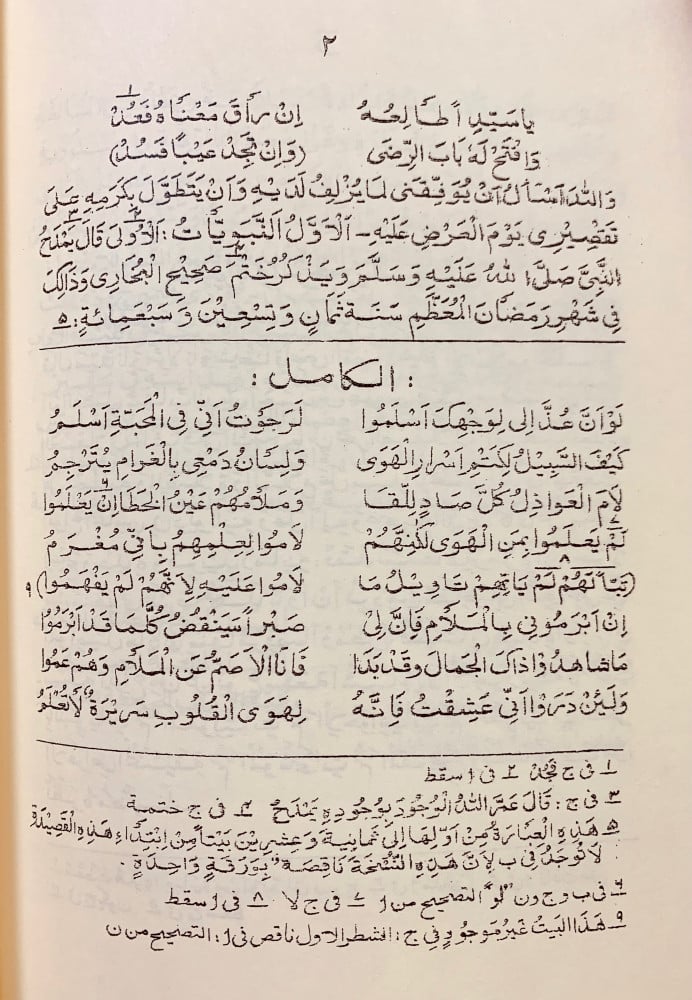 ٢
يا سَيِّدٍ أطَالِعُهُ إنْ رأقَ مَعْنَاهُ فَعُدْ١
وَافْتَحْ لَهُ بَابَ الرِّضَى (وَإنْ تَجِدْ عَيْبًا فَسُدْ)
وَاللّٰهَ أسْأَلُ أنْ يُوَفِّقَنِى لمَا يُزْلِفُ لَدَيْهِ وَأنْ يَتَطَوَّلَ بِكَرَمِهِ عَلَى
تَقْصِيْرِى يَوْمَ الْعَرْضِ عَلَيْهِ – الْأوَّلُ الْنَّبَوِيَّاتُ٢: الأُوْلَى قَالَ يَمْدَحُ٣
النَّبِىَّ صَلَّى اللهُ عَلَيْهِ وَسَلَّمَ وَيَذْكُرُ خَتْمَ٤ صَحِيْحِ الْبُخَارِى وَذَالِكَ
فِى شَهْرِ رَمَضَانَ الْمُعَظَّمِ سَنَةَ ثَمَانٍ وَتِسْعِيْنَ وَسَبْعَمِائَةٍ: ٥
: الكامل :
لَوْ أنَّ عُذَّالِى لِوَجْهِكَ أسْلَمُوا لَرَجَوْتُ أنِّى فِى الْمَحَبَّةِ أسْلَمُ
كَيْفَ السَّبِيْلُ لِكَتْمِ أسْرَارِ الْهَوَى وَلِسَانُ دَمْعِى بِالْغَرَامِ يُتَرْجِمُ
لَامَ الْعَوَاذِلُ كُلَّ صَادٍ لِلِّقَا وَمَلَامُهُمْ عَيْنُ الْخَطَا إنْ٦ يَعْلَمُوا
لَمْ٧ يَعْلَمُوا بِمَنِ الْهَوَى لَكِنَّهُمْ لَامُوا لِعِلْمِهِمُ بِأنِّى مُغْرَمُ
(تَبًّا لَهُمْ لَمْ٨ يَاتِهِمْ تَاوِيْلُ مَا لَامُوا عَلَيْهِ لِأنَّهُمْ لَمْ يَفْهَمُوا) ٩
إنْ أبْرَمُونِى بِالْمَلَامِ فَإنَّ لِىْ صَبْرًا سَيَنْقُضُ كُلَّمَا قَدْ أبْرَمُوْا
مَا شَاهَدُوْا ذَاكَ الْجَمَالَ وَقَدْ بَدَا فَأنَا الْأصَمُّ عَنِ الْمَلَامِ وَهُمْ عَمُوْا
وَلَئِنْ دَرَوْا أنِّى عَشِقْتُ فَإنَّهُ لِهَوَى الْقُلُوبِ سَرِيْرَةٌ لَا تُعْلَمُ
١ فى ج فَجُدْ ٢ فى أ سقط
٣ فى ج: قَالَ عَمَّرَ اللّٰهُ الْوُجُوْدَ بِوُجُوْدِهِ يَمْدَحُ ٤ فى ج ختمة
٥ هَذِهِ الْعِبَارَةُ مِنْ أوَّلِهَا إلَى ثَمَانِيَةٍ وَعِشْرِيْنَ بَيْتًا مِنْ إبْتِدَاءِ هَذِهِ الْقَصِيْدَةِ
لَا تُوْجَدُ فِى ب لِأنَّ هَذِهِ النُّسْخَةَ نَاقِصَةٌ بِوَرَقَةٍ وَاحِدَةٍ .
٦ فى ب و ج و ن "لو" التصحيح من أ ٧ فى ج لا ٨ فى أ سقط
٩ هَذَا الْبَيْتُ غَيْرُ مَوْجُوْدٍ فِى ج: الشطر الاول ناقص فى أ: التصحيح من ن